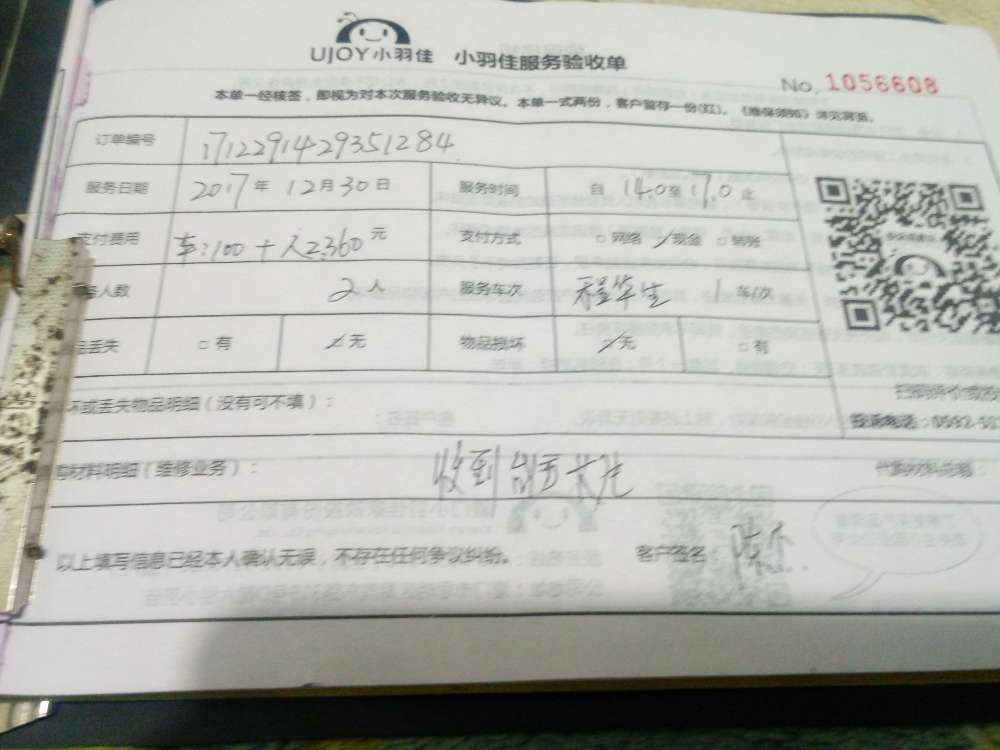 UJOY小羽佳 小羽佳服务验收单
No. 1056608
本单一经核签，即视为对本次服务验收无异议。本单一式两份，客户留存一份(红)。《维保须知》详见背面。
订单编号 171229142935 1284
服务日期 2017年 12月30日 服务时间 自 14.0至17.0止
支付费用 车:100 + 人2360元 支付方式 □网络 ✓现金 □转账
人数 2人 服务车次 1 车/次
丢失 □有 ✓无 物品损坏 ✓无 □有
坏或丢失物品明细（没有可不填）：
投诉电话：0592-
材料明细（维修业务）： 收到 代购材料总额：
以上填写信息已经本人确认无误，不存在任何争议纠纷。 客户签名：